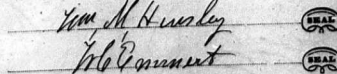 Wm M Hensley SEAL
W C Emmert SEAL